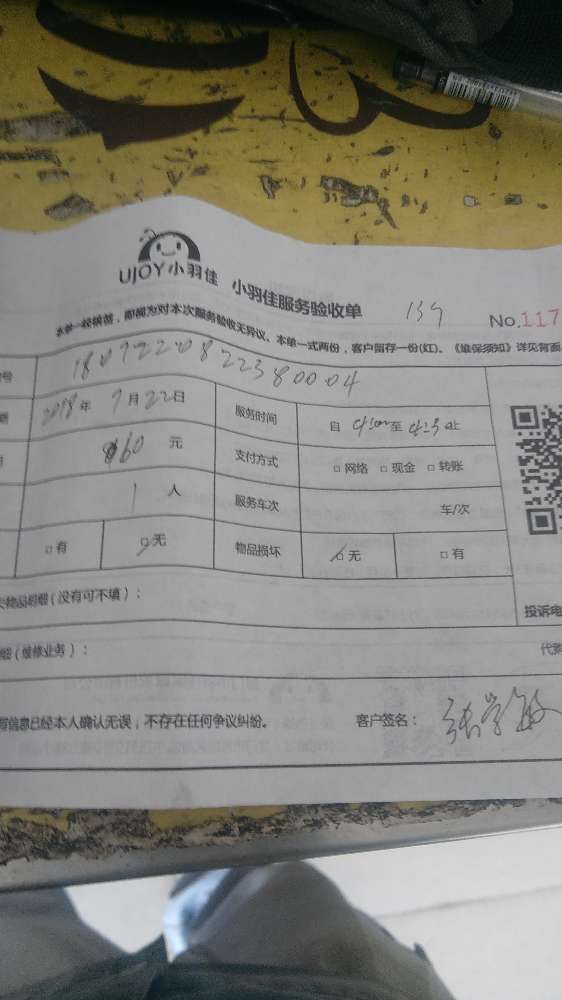 UJOY小羽佳 小羽佳服务验收单 139
No.117
本单一经填写,即视为对本次服务验收无异议。本单一式两份,客户留存一份(红)。《维保须知》详见背面
号 1809220822380004
2018年9月22日 服务时间 自 至 止
160 元 支付方式 □网络 □现金 □转账
1 人 服务车次 车/次
□有 □无 物品损坏 □无 □有
物品明细(没有可不填):
投诉电
细(维修业务):
代购
信息已经本人确认无误,不存在任何争议纠纷。 客户签名:张学敏